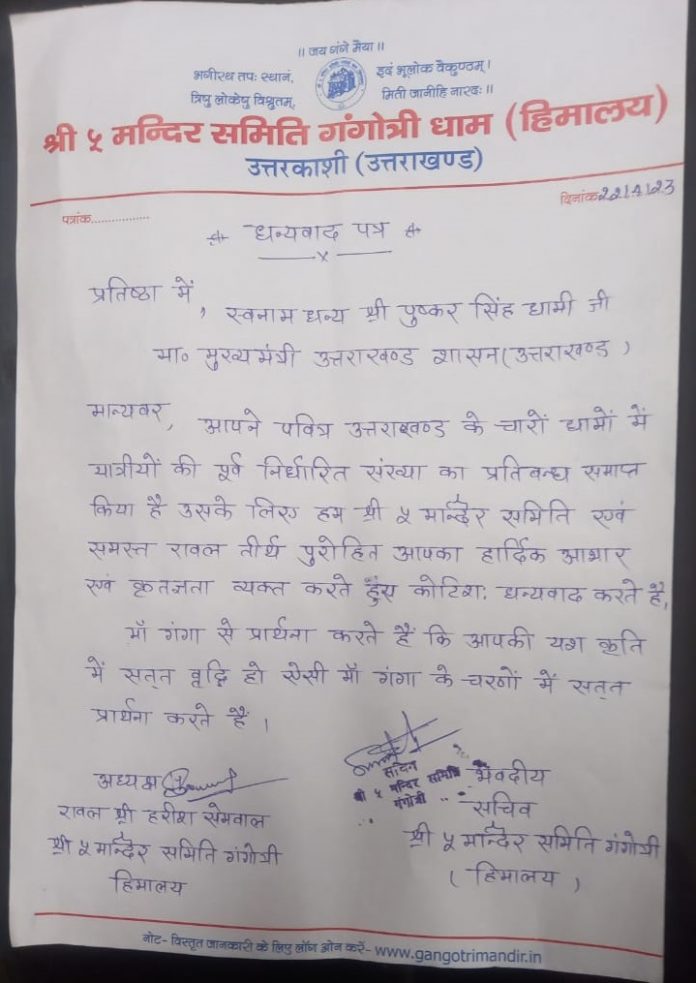 ॥ जय गंगे मैया ॥
भगीरथ तपः स्थानं, इवं भूलोक वैकुण्ठम् ।
त्रिषु लोकेषु विश्रुतम्, मिती जानीहि नारदः ॥
श्री ५ मन्दिर समिति गंगोत्री धाम (हिमालय)
उत्तरकाशी (उत्तराखण्ड)
पत्रांक................ दिनांक 22/4/23
धन्यवाद पत्र
x
प्रतिष्ठा में,
स्वनाम धन्य श्री पुष्कर सिंह धामी जी
मा० मुख्यमंत्री उत्तराखण्ड शासन (उत्तराखण्ड)
मान्यवर, आपने पवित्र उत्तराखण्ड के चारों धामों में
यात्रीयों की पूर्व निर्धारित संख्या का प्रतिबन्ध समाप्त
किया है उसके लिए हम श्री ५ मन्दिर समिति एवं
समस्त रावल तीर्थ पुरोहित आपका हार्दिक आभार
एवं कृतज्ञता व्यक्त करते हुए कोटिशः धन्यवाद करते है,
माँ गंगा से प्रार्थना करते हैं कि आपकी यश कृति
में सतत वृद्धि हो ऐसी माँ गंगा के चरणों में सतत
प्रार्थना करते हैं ।
अध्यक्ष
रावल श्री हरीश सेमवाल
श्री ५ मन्दिर समिति गंगोत्री
हिमालय
सचिव
श्री ५ मन्दिर समिति
गंगोत्री
भवदीय
सचिव
श्री ५ मन्दिर समिति गंगोत्री
( हिमालय )
नोट- विस्तृत जानकारी के लिए लॉग ओन करें- www.gangotrimandir.in